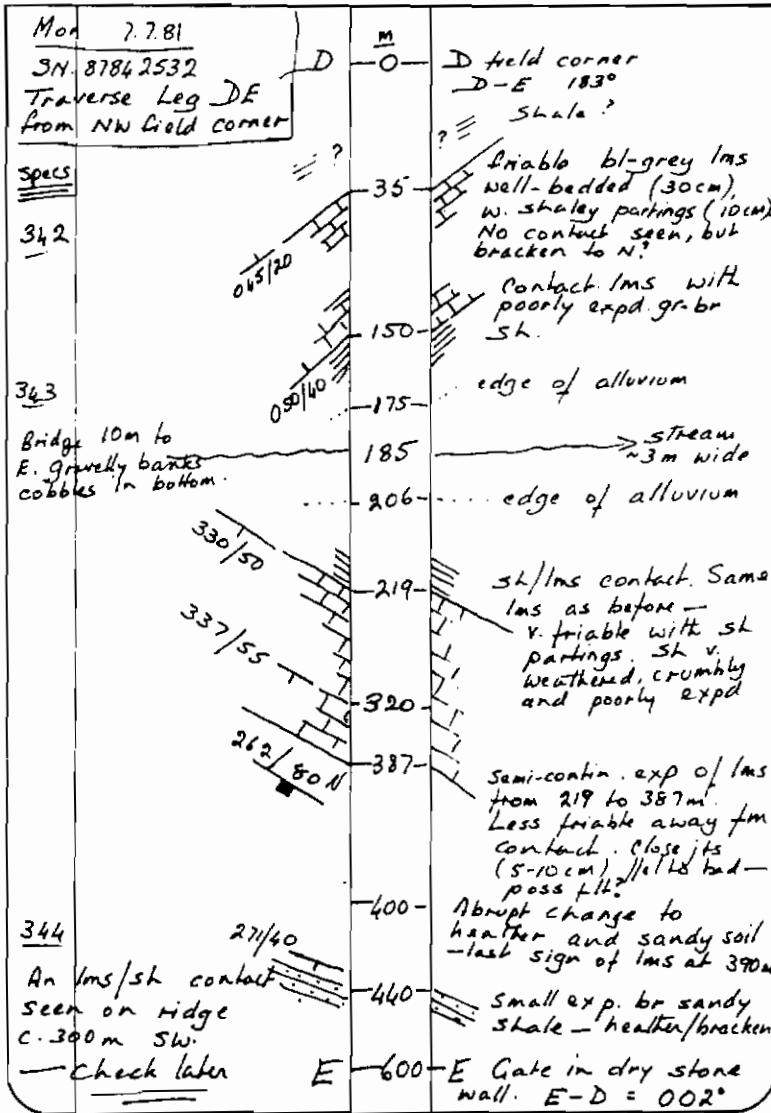 Mon 7.7.81
SN. 87842532
Traverse Leg DE
from NW field corner
specs
342
343
Bridge 10m to
E. gravelly banks
cobbles in bottom.
344
An lms/sh contact
seen on ridge
c. 300m SW.
— Check later
m
D 0
?
35
045/20
150
050/40
175
185
206
330/50
219
337/55
320
262/80N
387
400
271/40
440
E 600
D field corner
D-E 183°
Shale ?
?
friable bl-grey lms
well-bedded (30cm)
w. shaley partings (10cm)
No contact seen, but
bracken to N?
Contact. lms with
poorly expd. gr-br
sh.
edge of alluvium
stream
~3m wide
edge of alluvium
sh/lms contact. Same
lms as before —
v. friable with sh
partings. sh v.
weathered, crumbly
and poorly expd
Semi-contin. exp of lms
from 219 to 387m.
Less friable away fm
contact. close jts
(5-10cm) //el to bed —
poss flt?
Abrupt change to
heather and sandy soil
— last sign of lms at 390m
Small exp. br sandy
shale — heather/bracken
E Gate in dry stone
wall. E-D = 002°